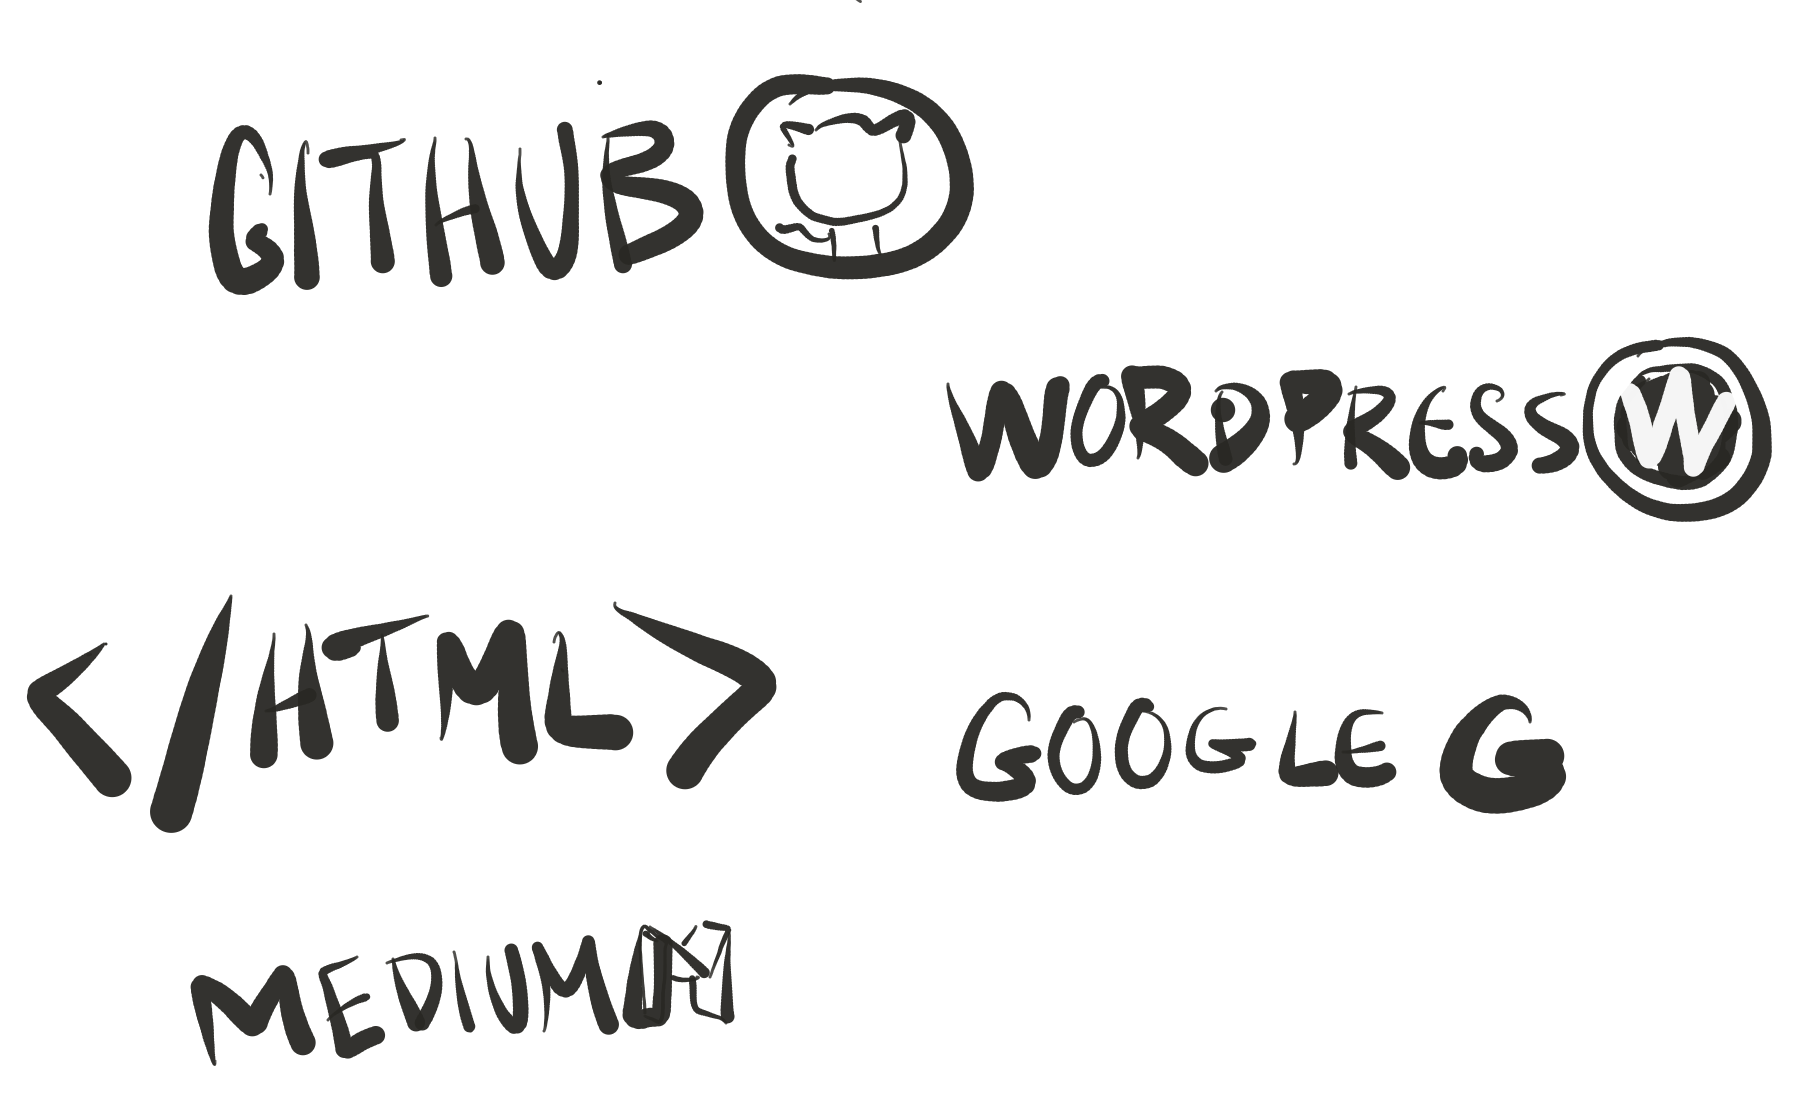 GITHUB
WORDPRESS W
</HTML>
GOOGLE G
MEDIUM M